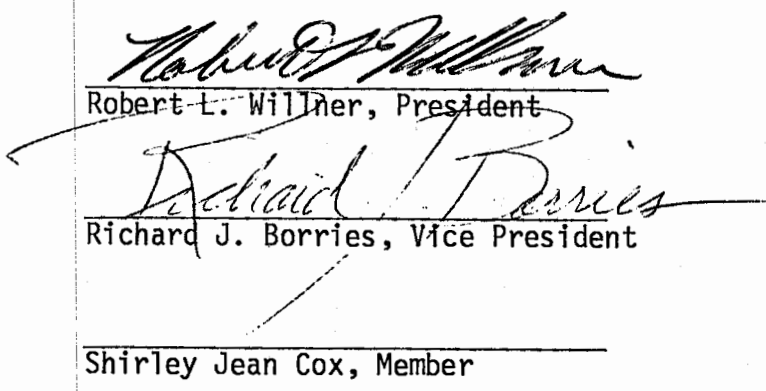 Robert L. Willner
Robert L. Willner, President
Richard J. Borries
Richard J. Borries, Vice President
Shirley Jean Cox, Member